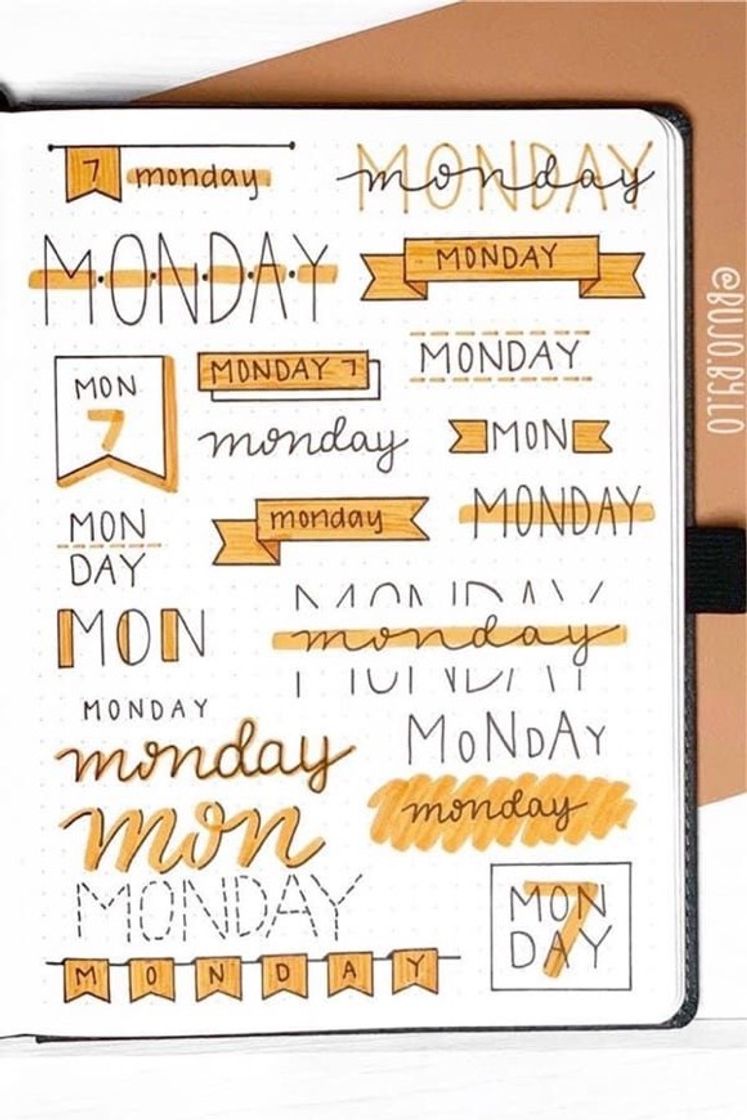 7 monday
MONDAY
monday
MONDAY
MONDAY
MON
7
MONDAY 7
MONDAY
monday
MON
MON
DAY
monday
MONDAY
MON
MONDAY
monday
MONDAY
MoNDAY
monday
monday
mon
MONDAY
MON
DAY
7
MONDAY
@BUJO.BY.LO